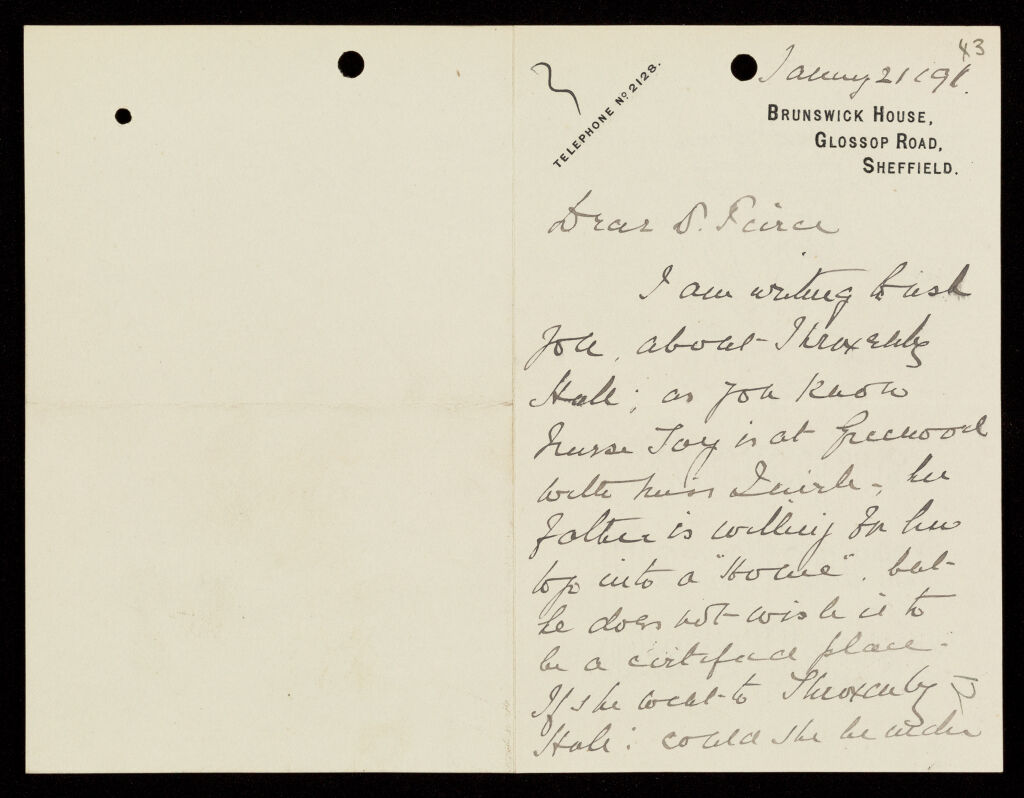 43
January 21 191
TELEPHONE Nº 2128.
BRUNSWICK HOUSE,
GLOSSOP ROAD,
SHEFFIELD.
Dear D. Peirce
I am writing to ask
you. about Throxenby
Hall; as you know
Nurse Toy is at Greenwood
with Miss - her
father is willing for her
to go into a "Home". but
he does not wish it to
be a certified place.
If she went to Throxenby
Hall: could she be under